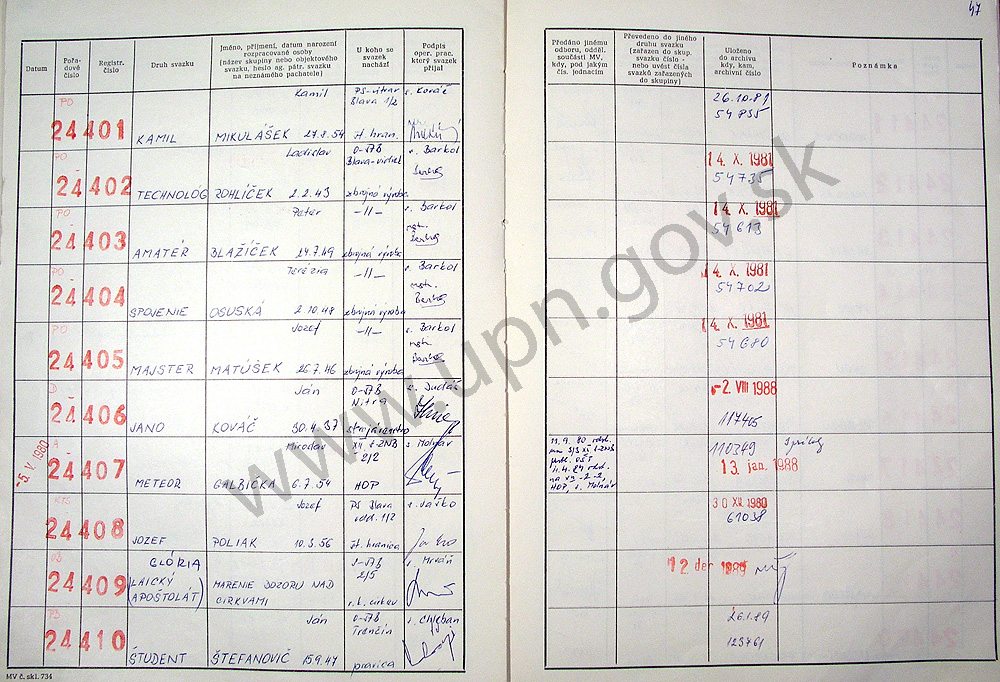 47
Datum
Pořa-
dové
číslo
Registr.
číslo
Druh svazku
Jméno, příjmení, datum narození
rozpracované osoby
(název skupiny nebo objektového
svazku, heslo ag. pátr. svazku
na neznámého pachatele)
U koho se
svazek
nachází
Podpis
oper. prac.
který svazek
přijal
Předáno jinému
odboru, odděl.
součásti MV,
kdy, pod jakým
čís. jednacím
Převedeno do jiného
druhu svazku
(zařazen do skup.
svazku číslo -
nebo uvést čísla
svazků zařazených
do skupiny)
Uloženo
do archivu
kdy, kam,
archivní číslo
Poznámka
PO
24 401 KAMIL Kamil MIKULÁŠEK 27.8.54
Blava 1/2
št. hran.
s. Kováč
26.10.81
54835
PO
24 402 TECHNOLOG Ladislav ROHLÍČEK 2.2.43
zbrojná výroba
s. Barkol
14. X. 1981
54735
PO
24 403 AMATÉR Peter BLAŽÍČEK 24.7.49
-11-
zbrojná výroba
s. Barkol
14. X. 1981
54613
PO
24 404 SPOJENIE Terézia OSUSKÁ 2.10.48
-11-
zbrojná výroba
s. Barkol
14. X. 1981
54702
PO
24 405 MAJSTER Jozef MATÚŠEK 26.7.46
-11-
zbrojná výroba
s. Barkol
14. X. 1981
54680
D
24 406 JANO Ján KOVÁČ 30.4.37
Nitra
strojárenstvo
s. Judáš
-2. VIII 1988
117405
-5. V. 1980
A
24 407 METEOR Miroslav GALBIČKA 6.7.54
2/2
HOP
s. Molnár
HOP, s. Molnár
110349
13. jan. 1988
KTS
24 408 JOZEF Jozef POLIAK 10.3.56
PS Blava
odd. 1/2
št. hranica
s. Jaško
30 XII. 1980
61038
24 409 GLÓRIA
(LAICKÝ
APOŠTOLÁT)
MARENIE DOZORU NAD
CIRKVAMI
2/5
r. k. cirkev
12 dec 1989
24 410 ŠTUDENT Ján ŠTEFANOVIČ 15.9.47
Trenčín
pravica
26.1.89
123761
MV č. skl. 734
www.upn.gov.sk